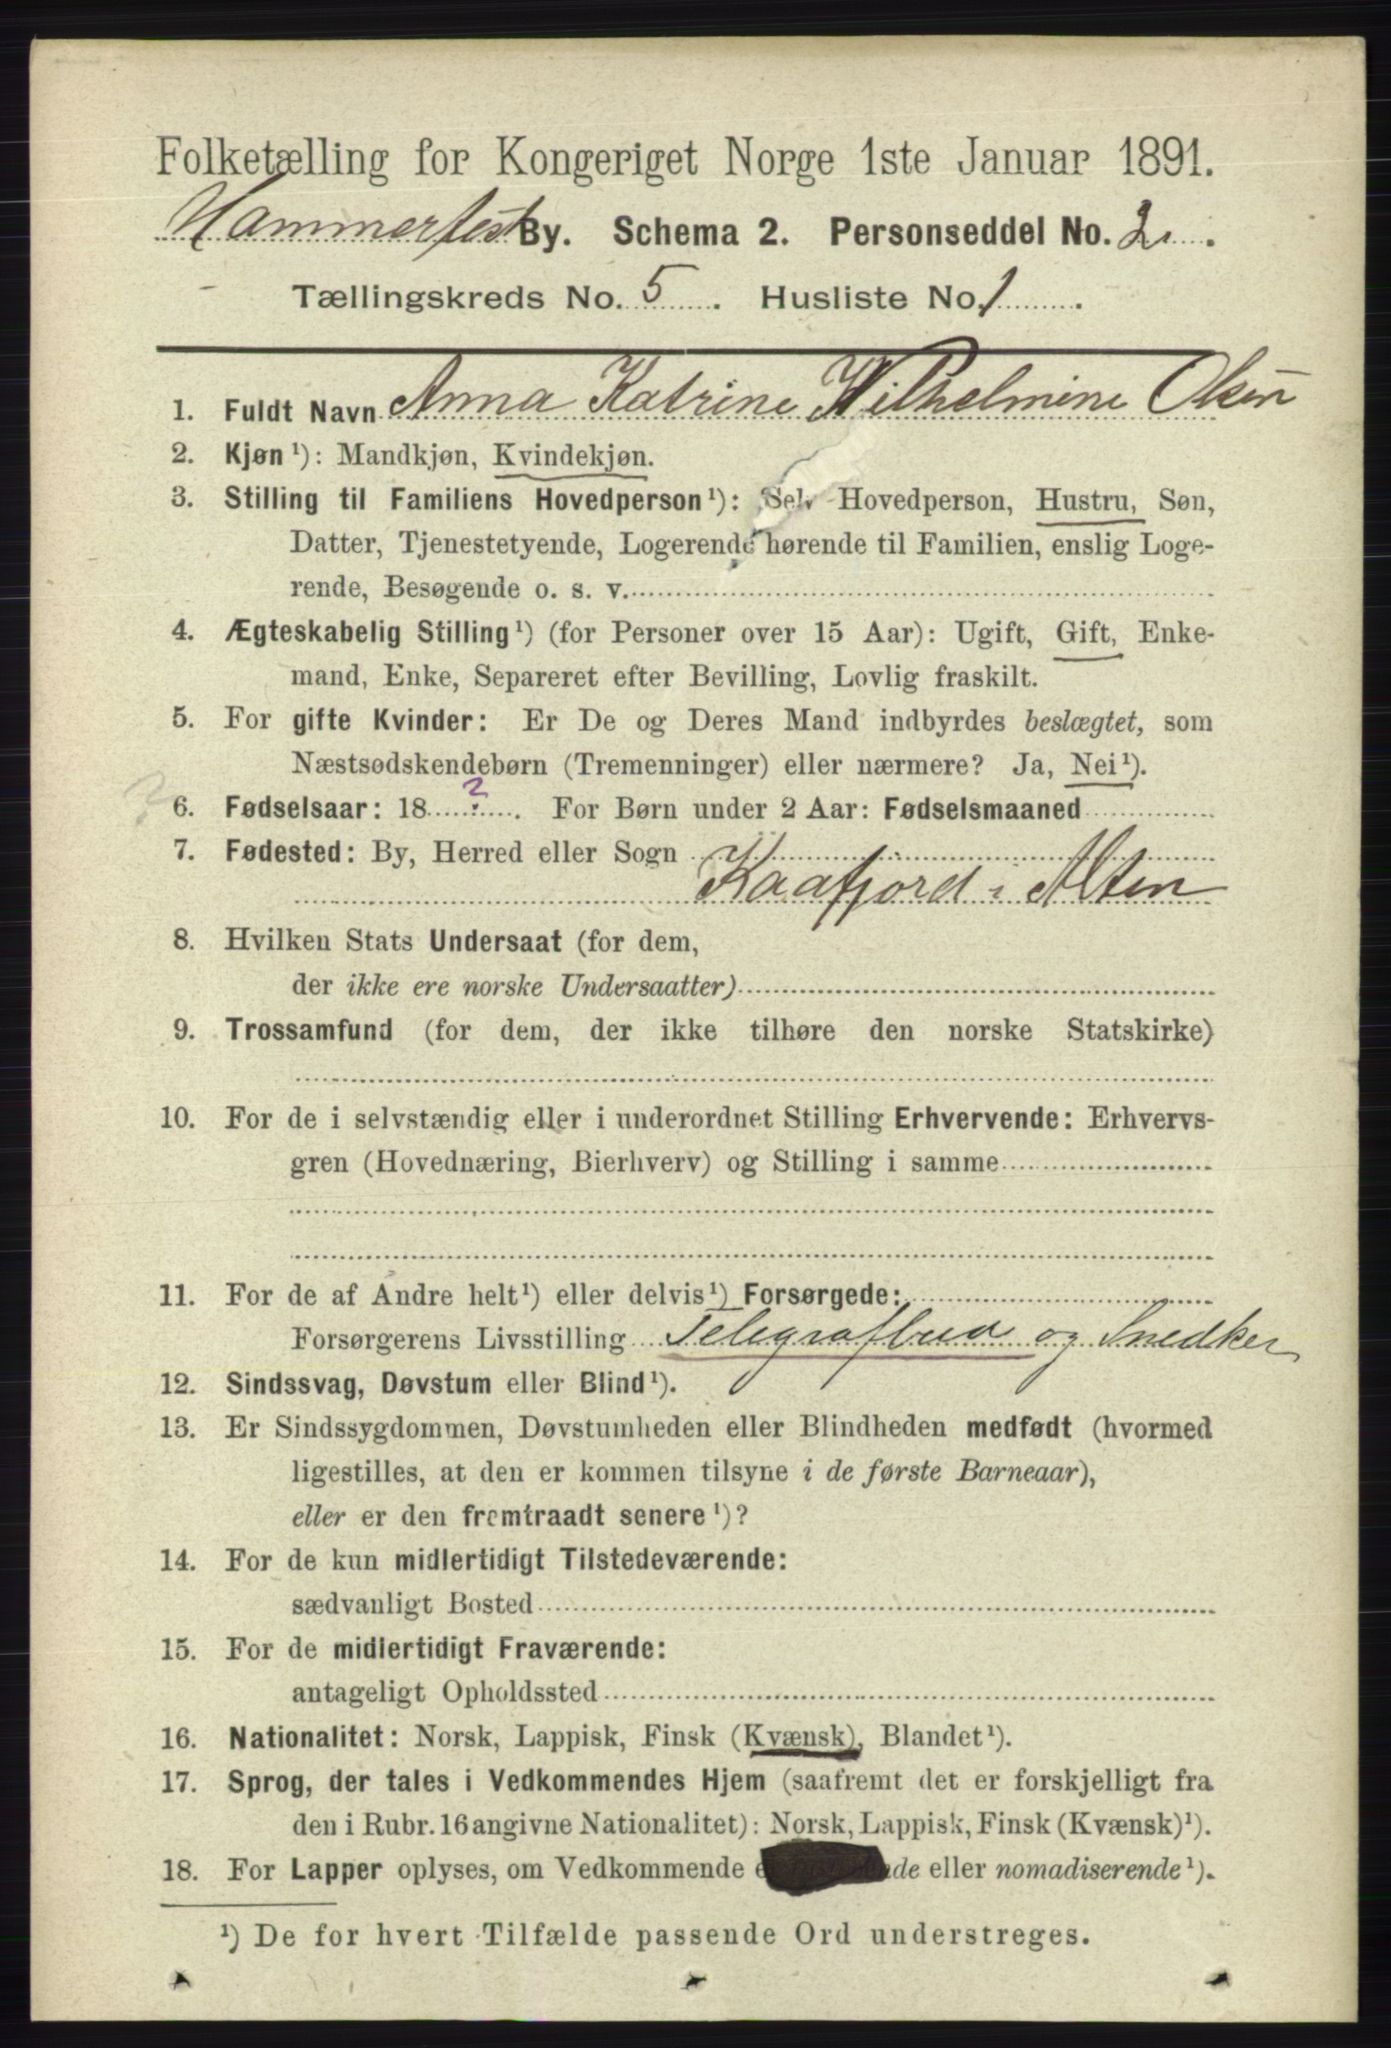 Folketælling for Kongeriget Norge 1ste Januar 1891.
Hammerfest By. Schema 2. Personseddel No. 2.
Tællingskreds No. 5. Husliste No. 1.
1. Fuldt Navn Anna Katrine Wilhelmine Olsen
2. Kjøn ¹): Mandkjøn, Kvindekjøn.
3. Stilling til Familiens Hovedperson ¹): Selv Hovedperson, Hustru, Søn,
Datter, Tjenestetyende, Logerende hørende til Familien, enslig Loge-
rende, Besøgende o. s. v.
4. Ægteskabelig Stilling ¹) (for Personer over 15 Aar): Ugift, Gift, Enke-
mand, Enke, Separeret efter Bevilling, Lovlig fraskilt.
5. For gifte Kvinder: Er De og Deres Mand indbyrdes beslægtet, som
Næstsødskendebørn (Tremenninger) eller nærmere? Ja, Nei ¹).
?
6. Fødselsaar: 18 ? . For Børn under 2 Aar: Fødselsmaaned
7. Fødested: By, Herred eller Sogn
Kaafjord i Alten
8. Hvilken Stats Undersaat (for dem,
der ikke ere norske Undersaatter)
9. Trossamfund (for dem, der ikke tilhøre den norske Statskirke)
10. For de i selvstændig eller i underordnet Stilling Erhvervende: Erhvervs-
gren (Hovednæring, Bierhverv) og Stilling i samme
11. For de af Andre helt ¹) eller delvis ¹) Forsørgede:
Forsørgerens Livsstilling Telegrafbud og Snedker
12. Sindssvag, Døvstum eller Blind ¹).
13. Er Sindssygdommen, Døvstumheden eller Blindheden medfødt (hvormed
ligestilles, at den er kommen tilsyne i de første Barneaar),
eller er den fremtraadt senere ¹)?
14. For de kun midlertidigt Tilstedeværende:
sædvanligt Bosted
15. For de midlertidigt Fraværende:
antageligt Opholdssted
16. Nationalitet: Norsk, Lappisk, Finsk (Kvænsk), Blandet ¹).
17. Sprog, der tales i Vedkommendes Hjem (saafremt det er forskjelligt fra
den i Rubr. 16 angivne Nationalitet): Norsk, Lappisk, Finsk (Kvænsk) ¹).
18. For Lapper oplyses, om Vedkommende eller nomadiserende ¹).
¹) De for hvert Tilfælde passende Ord understreges.